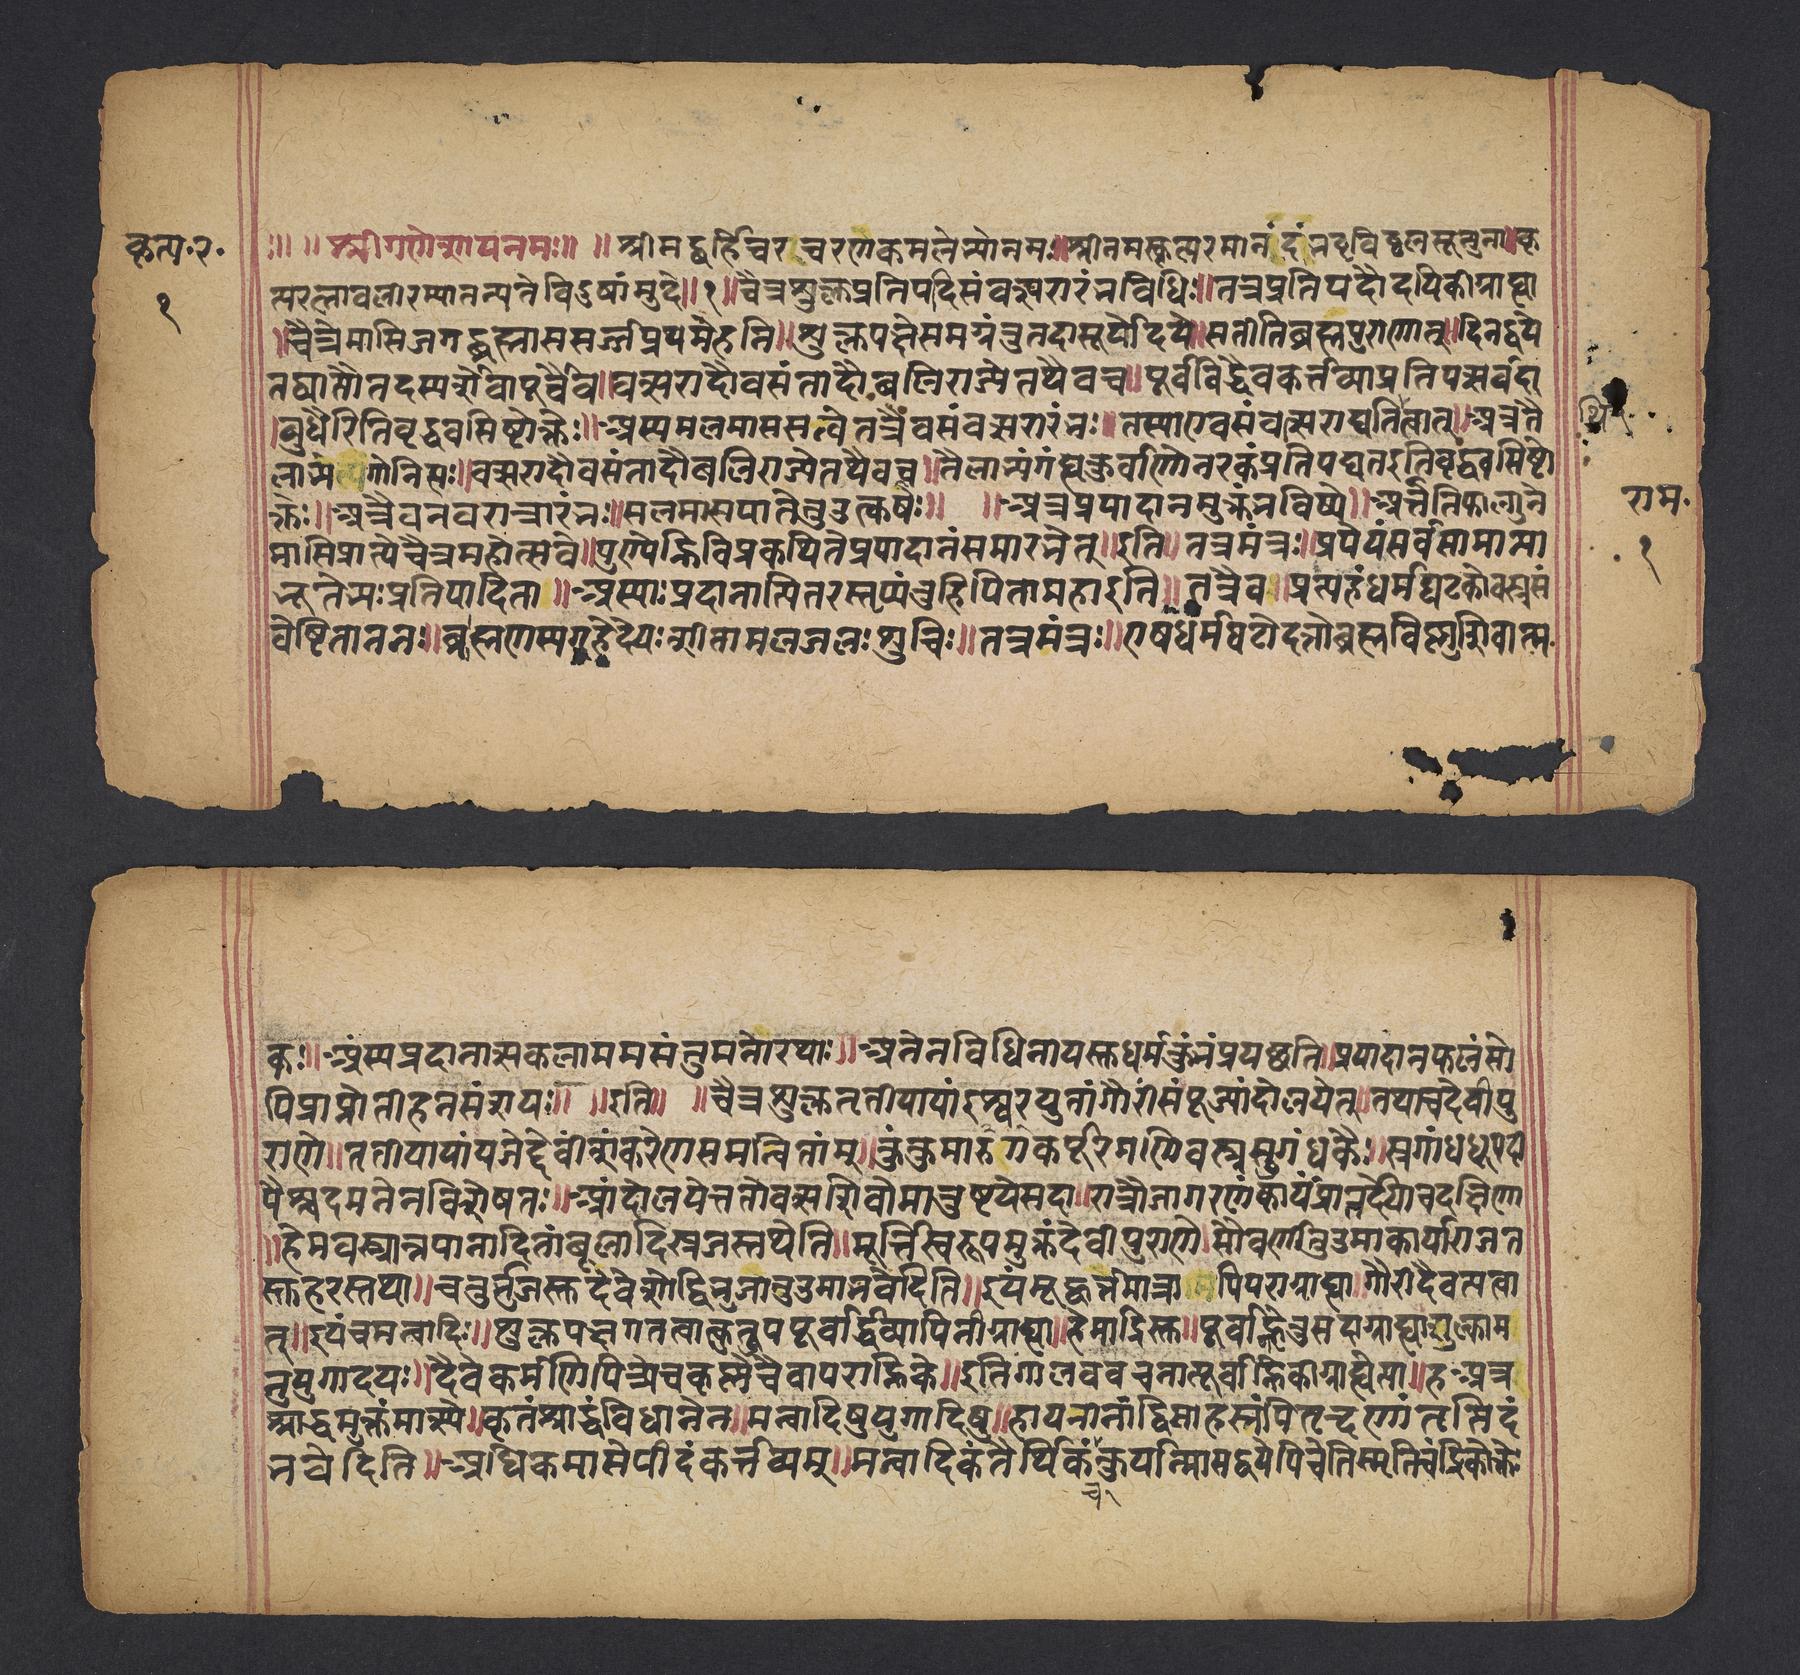 कृत्य.र.
१
॥ ॥ श्रीगणेशायनमः॥ ॥ श्रीमद्गुरुहरिचरणकमलेभ्योनमः॥श्रीनमस्कृत्परमानंदंनवृविठ्ठलसूनुना॥कृ
त्यरत्नावलीरम्यातन्यतेविदुषांमुदे॥१॥चैत्रशुक्लप्रतिपदिसंवत्सरारंभविधिः॥तत्रप्रतिपदौदयिकीग्राह्या
॥चैत्रेमासिजगद्ब्रह्माससर्ज्जप्रथमेहनि॥शुक्लपक्षेसमग्रंतुतदासूर्योदये॥सतीतिब्रह्मपुराणात्॥दिनद्वये
तद्याप्तौतदस्पर्शेवापूर्वैव॥वत्सरादौवसंतादौबलिराज्येतथैवच॥पूर्वविद्धैवकर्त्तव्याप्रतिपत्सर्वदा
बुधैरितिवृद्धवसिष्टोक्तेः॥अस्यमलमाससत्वेतत्रैवसंवत्सरारंभः॥तस्याएवसंवत्सराद्यतिथित्वात्॥अत्रतै
लाभ्यंगोनित्यः॥वत्सरादौवसंतादौबलिराज्येतथैवच॥तैलाभ्यंगंह्यकुर्वाणोनरकंप्रतिपद्यतइतिवृद्धवसिष्टो
क्तेः॥अत्रैवनवरात्रारंभः॥मलमासपातेतुउत्कर्षः॥ ॥अत्रप्रपादानमुक्तंभविष्ये॥अतीतेफाल्गुने
मासिप्राप्येचैत्रमहोत्सवे॥पुण्येह्निविप्रकथितेप्रपादानंसमारभेत्॥इति॥तत्रमंत्रः॥प्रपेयंसर्वसामान्या
भूतेभ्यःप्रतिपादिता॥अस्याःप्रदानात्पितरस्तृप्यंतुहिपितामहाइति॥तत्रैव॥प्रत्यहंधर्मघटकोवस्त्रसं
वेष्टिताननः॥ब्राह्मणस्यगृहेदेयःशीतामलजलःशुचिः॥तत्रमंत्रः॥एषधर्मघटोदत्तोब्रह्मविष्णुशिवात्म
थि
राम.
१
कः॥अस्यप्रदानात्सकलाममसंतुमनोरथाः॥अनेनविधिनायस्तुधर्मकुंभंप्रयच्छति॥प्रपादानफलंसो
पिप्राप्नोतीहनसंशयः॥ ॥इति॥ ॥चैत्रशुक्लतृतीयायांइश्वरयुतांगौरींसंपूज्यांदोलयेत्॥तथाचदेवीपु
राणे॥तृतीयायांयजेद्देवींशंकरेणसमन्वितांम्॥कुंकुमागरुकर्पूरमणिवस्त्रसुगंधकैः॥स्रगंधधूपदी
पैश्चदमनेनविशेषतः॥आंदोलयेत्ततोवत्सशिवोमातुष्टयेसदा॥रात्रौजागरणंकार्यंप्रातर्देयाचदक्षिणा
॥हेमवस्त्रान्नपानादितांबूलादिस्रजस्तथेति॥मूर्त्तिस्वरूपमुक्तंदेवीपुराणे॥सौवर्णातुउमाकार्याराजत
स्तुहरस्तथा॥चतुर्भुजस्तुदेवेशोद्विभुजातुउमाभवेदिति॥इयंमुहूर्त्तमात्रापिपराग्राह्या॥गौरीदैवत्यत्वा
त्॥इयंचमन्वादिः॥शुक्लपक्षगतत्वात्कृतूपपूर्वार्द्धव्यापिनीग्राह्या॥हेमाद्रिस्तु॥पूर्वाह्णेतुसदाग्राह्याशुक्लाम
नुयुगादयः॥दैवेकर्मणिपित्र्येचकृष्णेचैवापराह्णिके॥इतिगालववचनात्पूर्वाह्णिकीग्राह्येत्या॥हअत्र
श्राद्धमुक्तंमात्स्ये॥कृतंश्राद्धंविधानेन॥मन्वादिषुयुगादिषु॥हायनानांद्विसाहस्रंपितॄणांतृप्तिदं
भवेदिति॥अधिकमासेपीदंकर्त्तव्यम्॥मन्वादिकंतैर्थिकंकुर्यान्मासद्वयेपिचेतिस्मृतिचंद्रिकोक्तेः
च